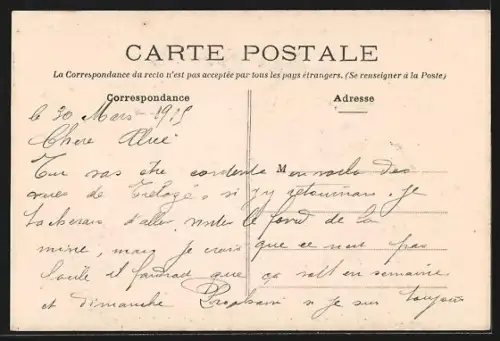 CARTE POSTALE
La Correspondance du recto n'est pas acceptée par tous les pays étrangers. (Se renseigner à la Poste)
Correspondance
Adresse
le 30 Mars 1915
Chere
Tu vas être contente M en voila des
vues de si j'y retournais je
tacherais d'aller visiter le fond de la
mine, mais je crois que ce n'est pas
facile il faudrait que ça soit en semaine
et dimanche je suis toujours